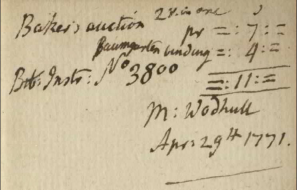 Baker's auction 2 v: in one
pr =: 7: =
Baumgarten binding =: 4: =
Bib: Instr: No 3800 =: 11: =
M: Wodhull
Apr: 29th 1771.